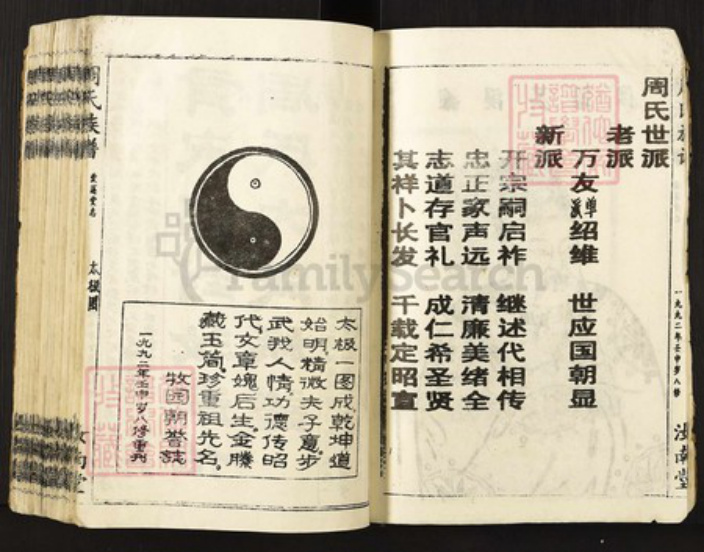 周氏世派
老派
万友 绍维 世应国朝显
新派
开宗嗣启祚 继述代相传
忠正家声远 清廉美绪全
志道存官礼 成仁希圣贤
其祥卜长发 千载定昭宣
一九九二年壬申岁八修
汝南堂
周氏族谱
爱莲堂志
太极图
太极一图成，乾坤道
始明，精微夫子意，步
武我人情，功德传昭
代，文章媿后生，金縢
藏玉简，珍重祖先名。
牧园朝誉誌
一九九二年壬申岁八修重刊
FamilySearch